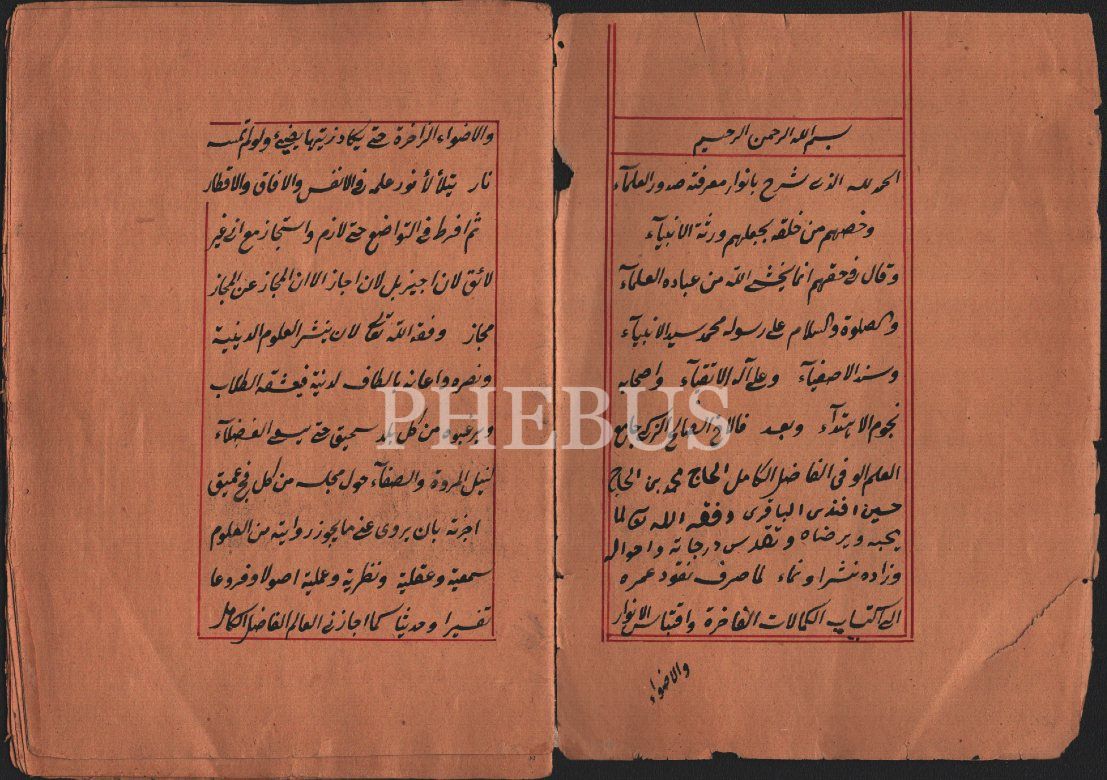 بسم الله الرحمن الرحيم
الحمد لله الذى شرح بانوار معرفته صدور العلمآء
وخصهم من خلقه بجعلهم ورثة الانبيآء
وقال فى حقهم انما يخشى الله من عباده العلمآء
والصلوة والسلام على رسوله محمد سيد الانبيآء
وسند الاصفيآء وعلى آله الاتقيآء واصحابه
نجوم الاهتدآء وبعد فالاخ العالم الزكى جامع
العلم الوفى الفاضل الكامل الحاج محمد بن الحاج
حسين افندى الباقرى وفقه الله تعالى لما
يحبه ويرضاه وتقدس درجاته واحواله
وزاده نشرا ونماء لما صرف نقود عمره
الى اكتساب الكمالات الفاخرة واقتباس الانوار
والاضواء
والاضواء الزاخرة حتى يكاد زيتها يضيئ ولو لم تمسه
نار يتلألأ نور علمه فى الانفس والافاق والاقطار
ثم افرط فى التواضع حتى لازم واستجاز مع انى غير
لائق لان اجيز بل لان اجاز الا ان المجاز عن المجاز
مجاز وفقه الله تعالى لان ينشر العلوم الدينية
ونصره واعانه بالطاف لدنية فيعشقه الطلاب
ويرغبوه من كل بلد سحيق حتى يسعى الفضلآء
لنيل المروة والصفآء حول مجلسه من كل فج عميق
اجزته بان يروى عنى ما يجوز روايته من العلوم
سمعية وعقلية ونظرية وعملية اصولا وفروعا
تفسيرا وحديثا كما اجازنى العالم الفاضل الكامل
PHEBUS